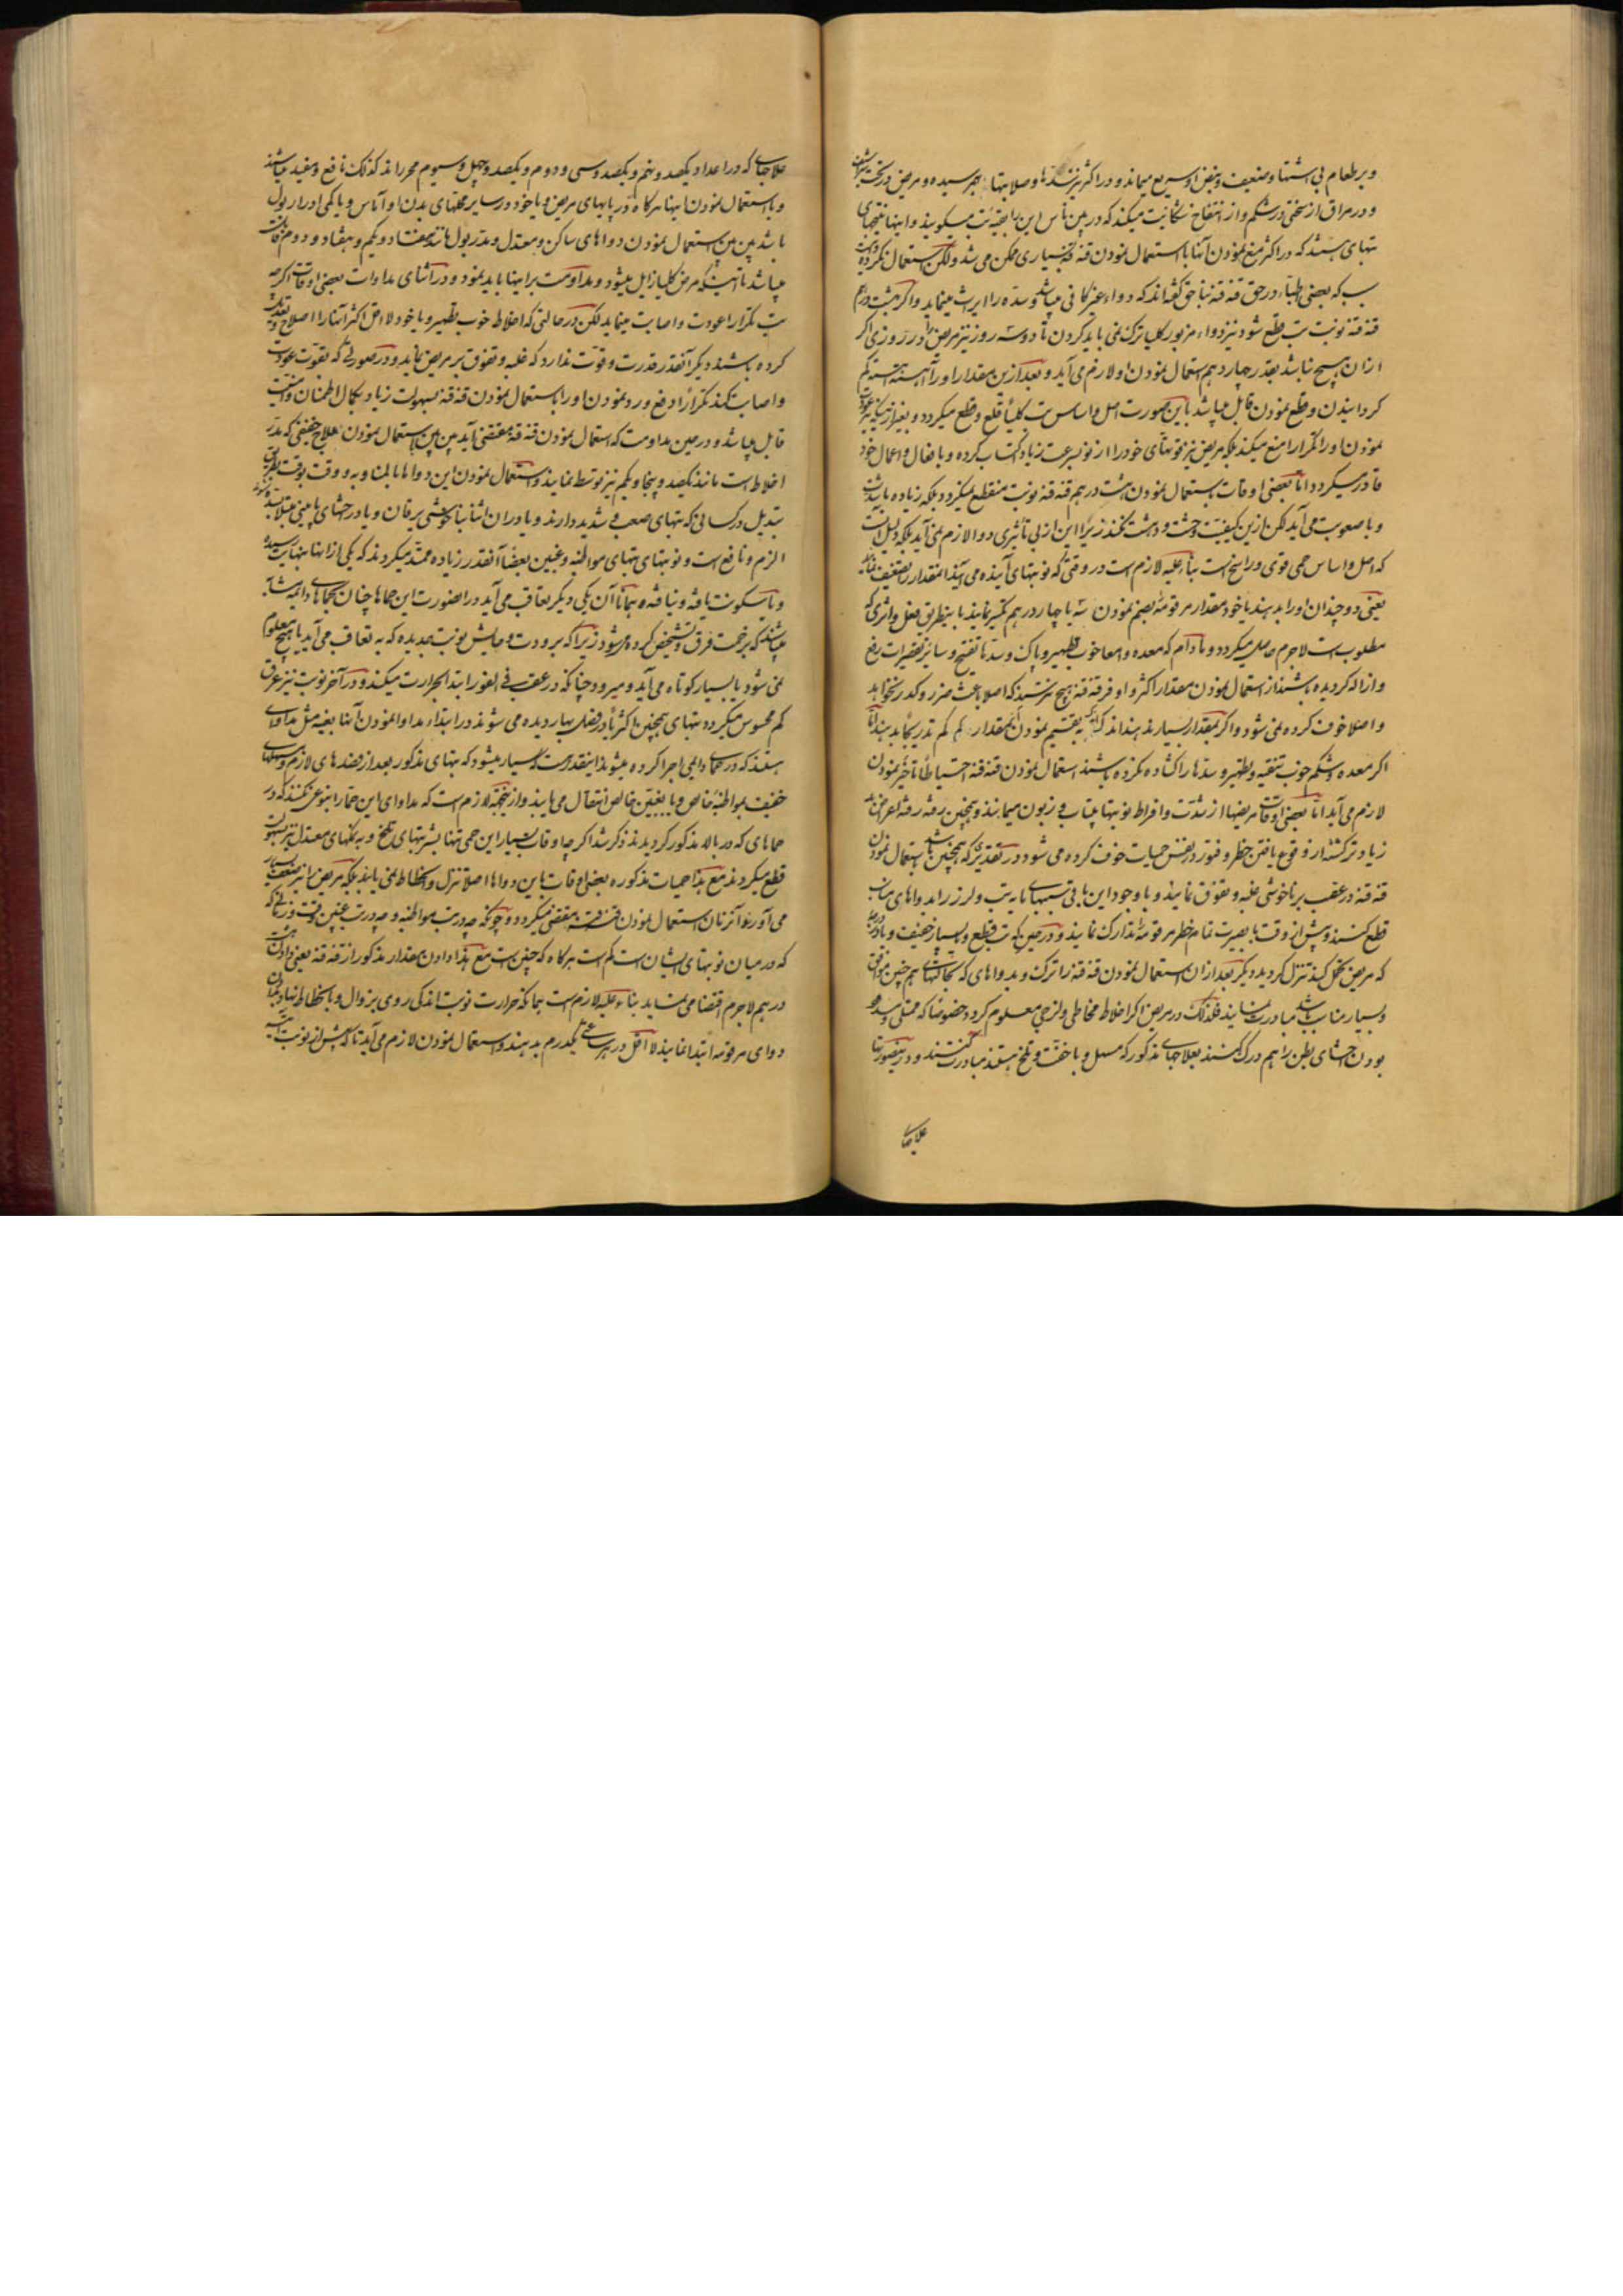 و بر طعام بی اشتها و ضعیف و نبض او سریع میماند و در اکثر نیز سدها و صلابتها بهم رسیده و مریض در تحت
و در مراق از سختی در شکم و از انتفاخ شکایت میکند که در بین ناس این را بقیه تب میگویند و اینها نتیجهای
تبهای هستند که در اکثر منع نمودن آنها با استعمال نمودن قنه قنه بسیاری ممکن می شد ولکن استعمال نکرده
سبب که بعضی اطباء در حق قنه قنه بناحق گفته اند که دواء غیر کافی میباشد و سده را ایراث مینماید و اگر هشت درهم
قنه قنه نوبت تب قطع شود نیز دواء مزبور کلیا ترک نمی باید کردن تا دو سه روز نیز مریض در روزی اگر
ازان هیچ نباشد بقدر چهار درهم استعمال نمودن او لازم می آید و بعد ازین مقدار او را آهسته آهسته کم
گردانیدن و قطع نمودن قابل میباشد باین صورت اصل و اساس تب کلیاً قلع و قطع میگردد و بغیر از اینکه
نمودن او را تکراراً منع میکند بلکه مریض نیز قوتهای خود را از نو بسرعت زیاد اکتساب کرده و بافعال و اعمال خود
قادر میگردد اما بعضی اوقات باستعمال نمودن هشت درهم قنه قنه نوبت منقطع نمیگردد بلکه زیاده با شدت
و با صعوبت می آید لکن ازین کیفیت وحشت و دهشت نکنند زیرا این از بی تأثیری دوا لازم نمی آید بلکه دلیل است
که اصل و اساس حمی قوی و راسخ است بناء علیه لازم است در وقتی که نوبتهای آینده می آیند مقدار را تضعیف نمایند
یعنی دو چندان او را بدهند یا خود مقدار مرقومه بضم نمودن سه یا چهار درهم تکثیر نمایند باینطریق فعل و اثری که
مطلوب است لاجرم حاصل میگردد و مادام که معده و امعا خوب تطهیر و پاک و سدها تفتیح و سایر تقصیرات رفع
و ازاله گردیده باشند از استعمال نمودن مقدار اکثر و اوفر قنه قنه هیچ نترسند که اصلا باعث ضرر و کدر نخواهد
و اصلا خوف کرده نمی شود و اگر بمقدار بسیار ندهند اندک اندک به تقسیم نمودن آنمقدار کم کم تدریجا بدهند اما
اگر معده و شکم خوب تنقیه و تطهیر و سدها را گشاده نکرده باشند استعمال نمودن قنه قنه احتیاطاً تأخیر نمودن
لازم می آید اما بعضی اوقات مریضها از شدت و افراط نوبتها بیتاب و زبون میمانند و همچنین رفته رفته امراض
زیادتر گشته از وقوع یافتن خطر و فتور در نفس حیات خوف کرده می شود در تقدیری که همچنین باشد باستعمال نمودن
قنه قنه در عقب بر ناخوشی غلبه و تفوق نمایند و باوجود این باقی سببهای مایه تب و لرز را بدواهای مناسب
قطع کنند و پیش از وقت با بصیرت تمام خطر مرقومه تدارک نمایند و در حین که تب قطع و بسیار خفیف و یا
که مریض تحمل کند تنزل گردید دیگر بعد ازان استعمال نمودن قنه قنه را ترک و بدواهای که بحالتها هم چنین موافق
و بسیار مناسب باشد مبادرت نمایند فکذلک در مریض اگر اخلاط مخاطی و لزجی معلوم کردد خصوصا که ممتلی و سده
بودن احشای بطن را هم درک کنند بعلاجهای مذکور که مسهل و باخفت و تلخ هستند مبادرت کنند و درینصورتها
علاجهای
علاجهای که در اعداد یکصد و پنجم و یکصد و سی و دوم و یکصد و چهل و سیوم محررند کذلک نافع و مفید میباشند
و باستعمال نمودن اینها هرگاه در پایهای مریض و یا خود در سایر محلهای بدن او آماس و یا کمی ادرار بول
باشد پس استعمال نمودن دواهای ساکن و معتدل و مدر بول مانند هفتاد و یکم و هفتاد و دوم
میباشد تا اینکه مرض کلیا زایل میشود و مداومت بر اینها باید نمود و در اثنای مداوات بعضی اوقات اگرچه
تب تکرارا عودت و اصابت مینماید لکن در حالتی که اخلاط خوب تطهیر و یا خود لااقل اکثر آنها را اصلاح
کرده باشند دیگر آنقدر قدرت و قوت ندارد که غلبه و تفوق بر مریض نماید و در صورتی که بقوت عودت
و اصابت کند تکراراً دفع و رد نمودن او را باستعمال نمودن قنه قنه بسهولت زیاد بکمال اطمنان و امنیت
قابل میباشد و در حین مداومت که استعمال نمودن قنه قنه مقتضی آید پس استعمال نمودن علاج خفیفی که مدر
اخلاط است مانند یکصد و پنجاه و یکم نیز توسط نمایند و استعمال نمودن این دواها بالمناوبه و وقت بوقت بطریق
تبدیل در کسانی که تبهای صعب و شدید دارند و یا در آن اثنا بناخوشی یرقان و یا در حبسهای
الزم و نافع است و نوبتهای تبهای مواظبه و غبین بعضاً آنقدر زیاده ممتد میگردند که یکی از آنها بنهایت رسیده
و یا سکونت یافته و نیافته همانا آن یکی دیگر بعاقب می آید در اصورت این حماها چنان بحماهای دایمه مشابه
میباشند که بزحمت فرق و تشخیص کرده میشود زیرا که برودت و مایش نوبت جدیده که به تعاقب می آید یا هیچ معلوم
نمی شود یا بسیار کوتاه می آید و میرود چنانکه در عقب فی الفور ابتدا بحرارت میکند و در آخر نوبت نیز عرق
کم محسوس میگردد تبهای همچنین اکثریا در فصل بهار دیده می شوند در ابتداء مداوا نمودن آنها بعینه مثل مداوای
هستند که در حمای دایمی اجرا کرده میشوند اینقدر هست بسیار میشود که تبهای مذکور بعد از فصدهای لازم و مسهلهای
خفیف بمواظبه خالص و یا بغبین خالص انتقال می یابند و از این جهت لازم است که مداوای این حما را بنوعی کنند که در
حماهای که در بالا مذکور گردیدند ذکر شد اگرچه اوقات بسیار این حمی تنها بشربتهای تلخ و به نمکهای معتدل نیز بسهولت
قطع میگردند مع هذا حمیات مذکوره بعضی اوقات باین دواها اصلا تنزل و انحطاط نمی یابند بلکه مریض را نیز ضعف بسیار
می آورند آنزمان استعمال نمودن قنه قنه مقتضی میگردد و چونکه چه در تب مواظبه و چه در تب غبین وقت و زمانی که
که در میان نوبتهای ایشان است کم است هرگاه که چنین است مع هذا دادن مقدار مذکور از قنه قنه یعنی دادن هشت
درهم لاجرم اقتضا می نماید بناء علیه لازم است بمانکه حرارت نوبت اندکی روی بزوال و یا بانحطاط نهاد بدادن
دوای مرقومه ابتدا نمایند لااقل در هر ساعتی یکدرم بدهند و استعمال نمودن لازم می آید تا که پیش از نوبت